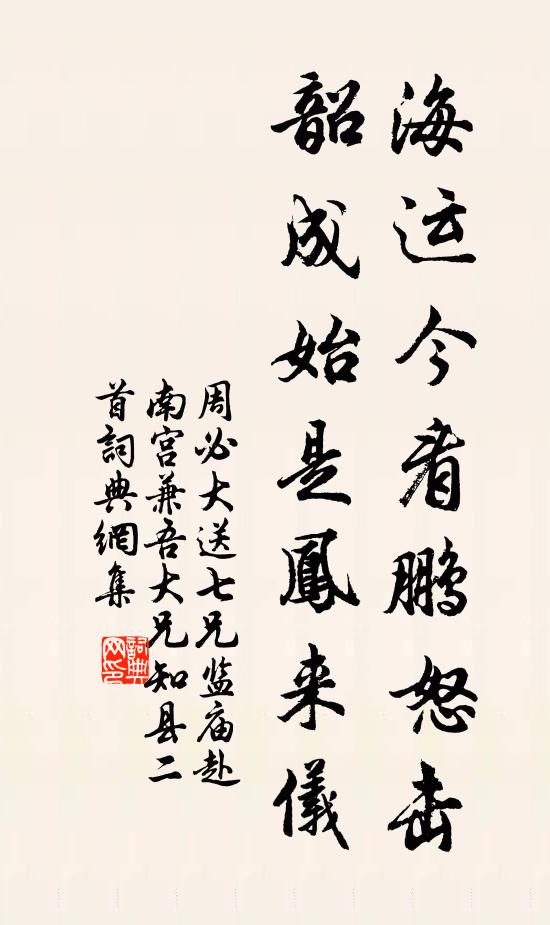 海运今看鹏怒击
韶成始是鳳来儀
周必大送七兄监庙赴
南宫兼吾大兄知县二
首詞典網集
詞典
网印